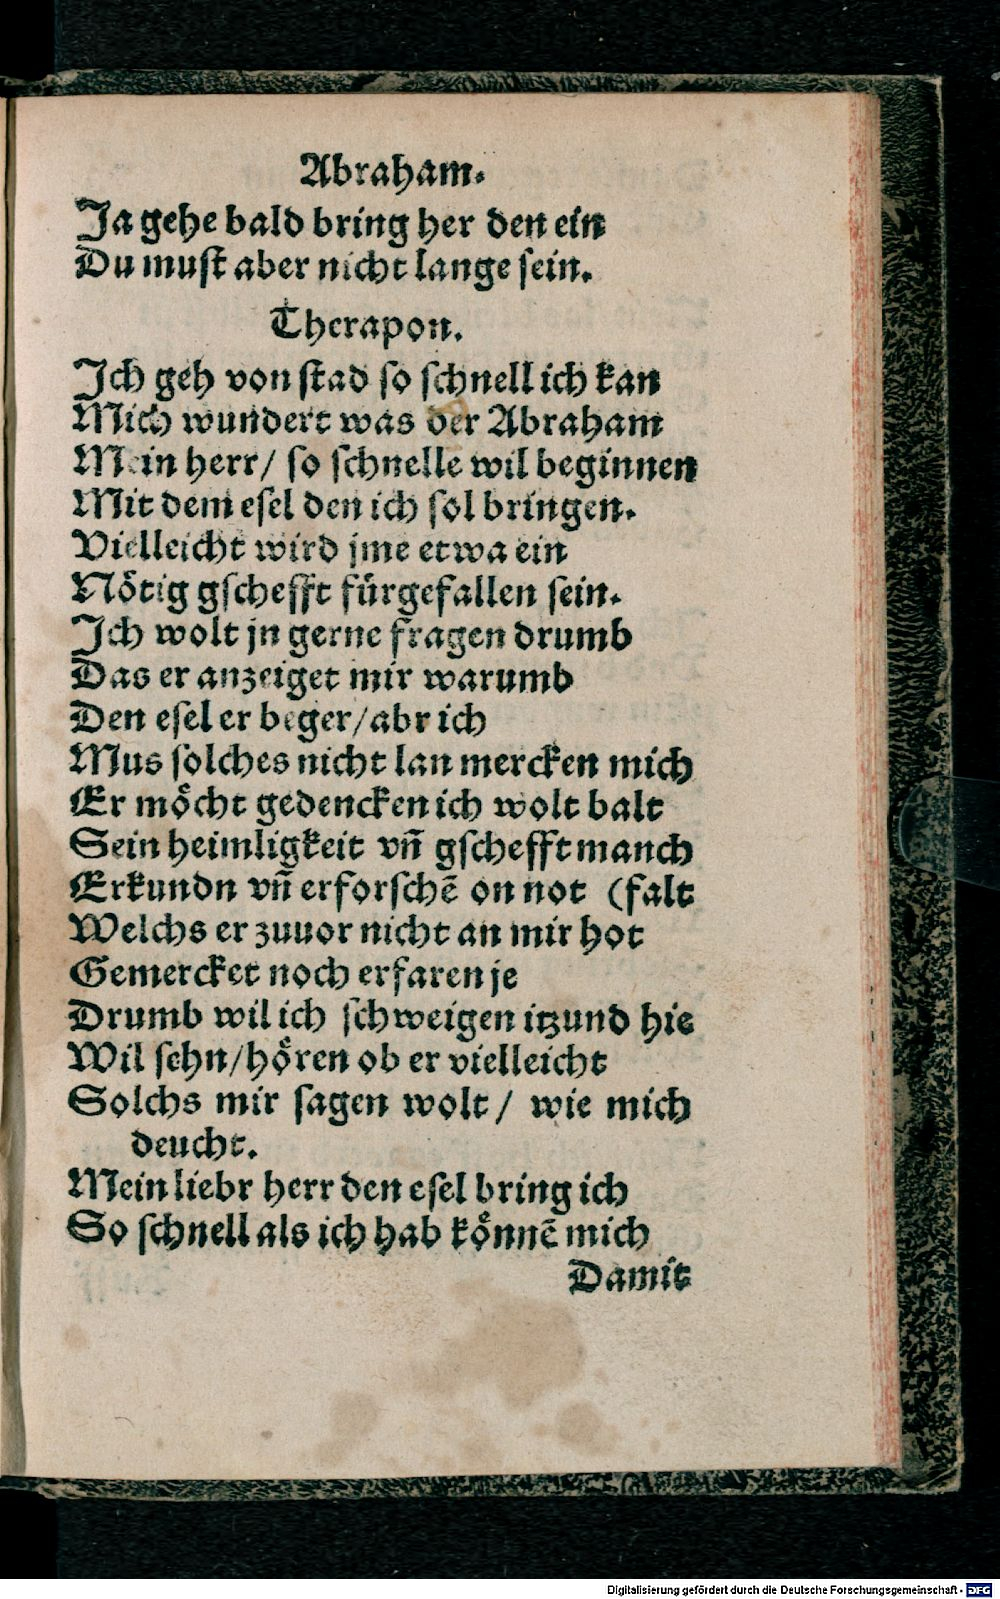 Abraham.
Ja gehe bald bring her den ein
Du must aber nicht lange sein.
Therapon.
Ich geh von stad so schnell ich kan
Mich wundert was der Abraham
Mein herr/ so schnelle wil beginnen
Mit dem esel den ich sol bringen.
Vielleicht wird jme etwa ein
Nötig gschefft fürgefallen sein.
Ich wolt jn gerne fragen drumb
Das er anzeiget mir warumb
Den esel er beger/abr ich
Mus solches nicht lan mercken mich
Er möcht gedencken ich wolt balt
Sein heimligkeit vn̄ gschefft manch
Erkundn vn̄ erforschē on not (falt
Welchs er zuuor nicht an mir hot
Gemercket noch erfaren je
Drumb wil ich schweigen itzund hie
Wil sehn/hören ob er vielleicht
Solchs mir sagen wolt/ wie mich
deucht.
Mein liebr herr den esel bring ich
So schnell als ich hab könnē mich
Damit
Digitalisierung gefördert durch die Deutsche Forschungsgemeinschaft - DFG